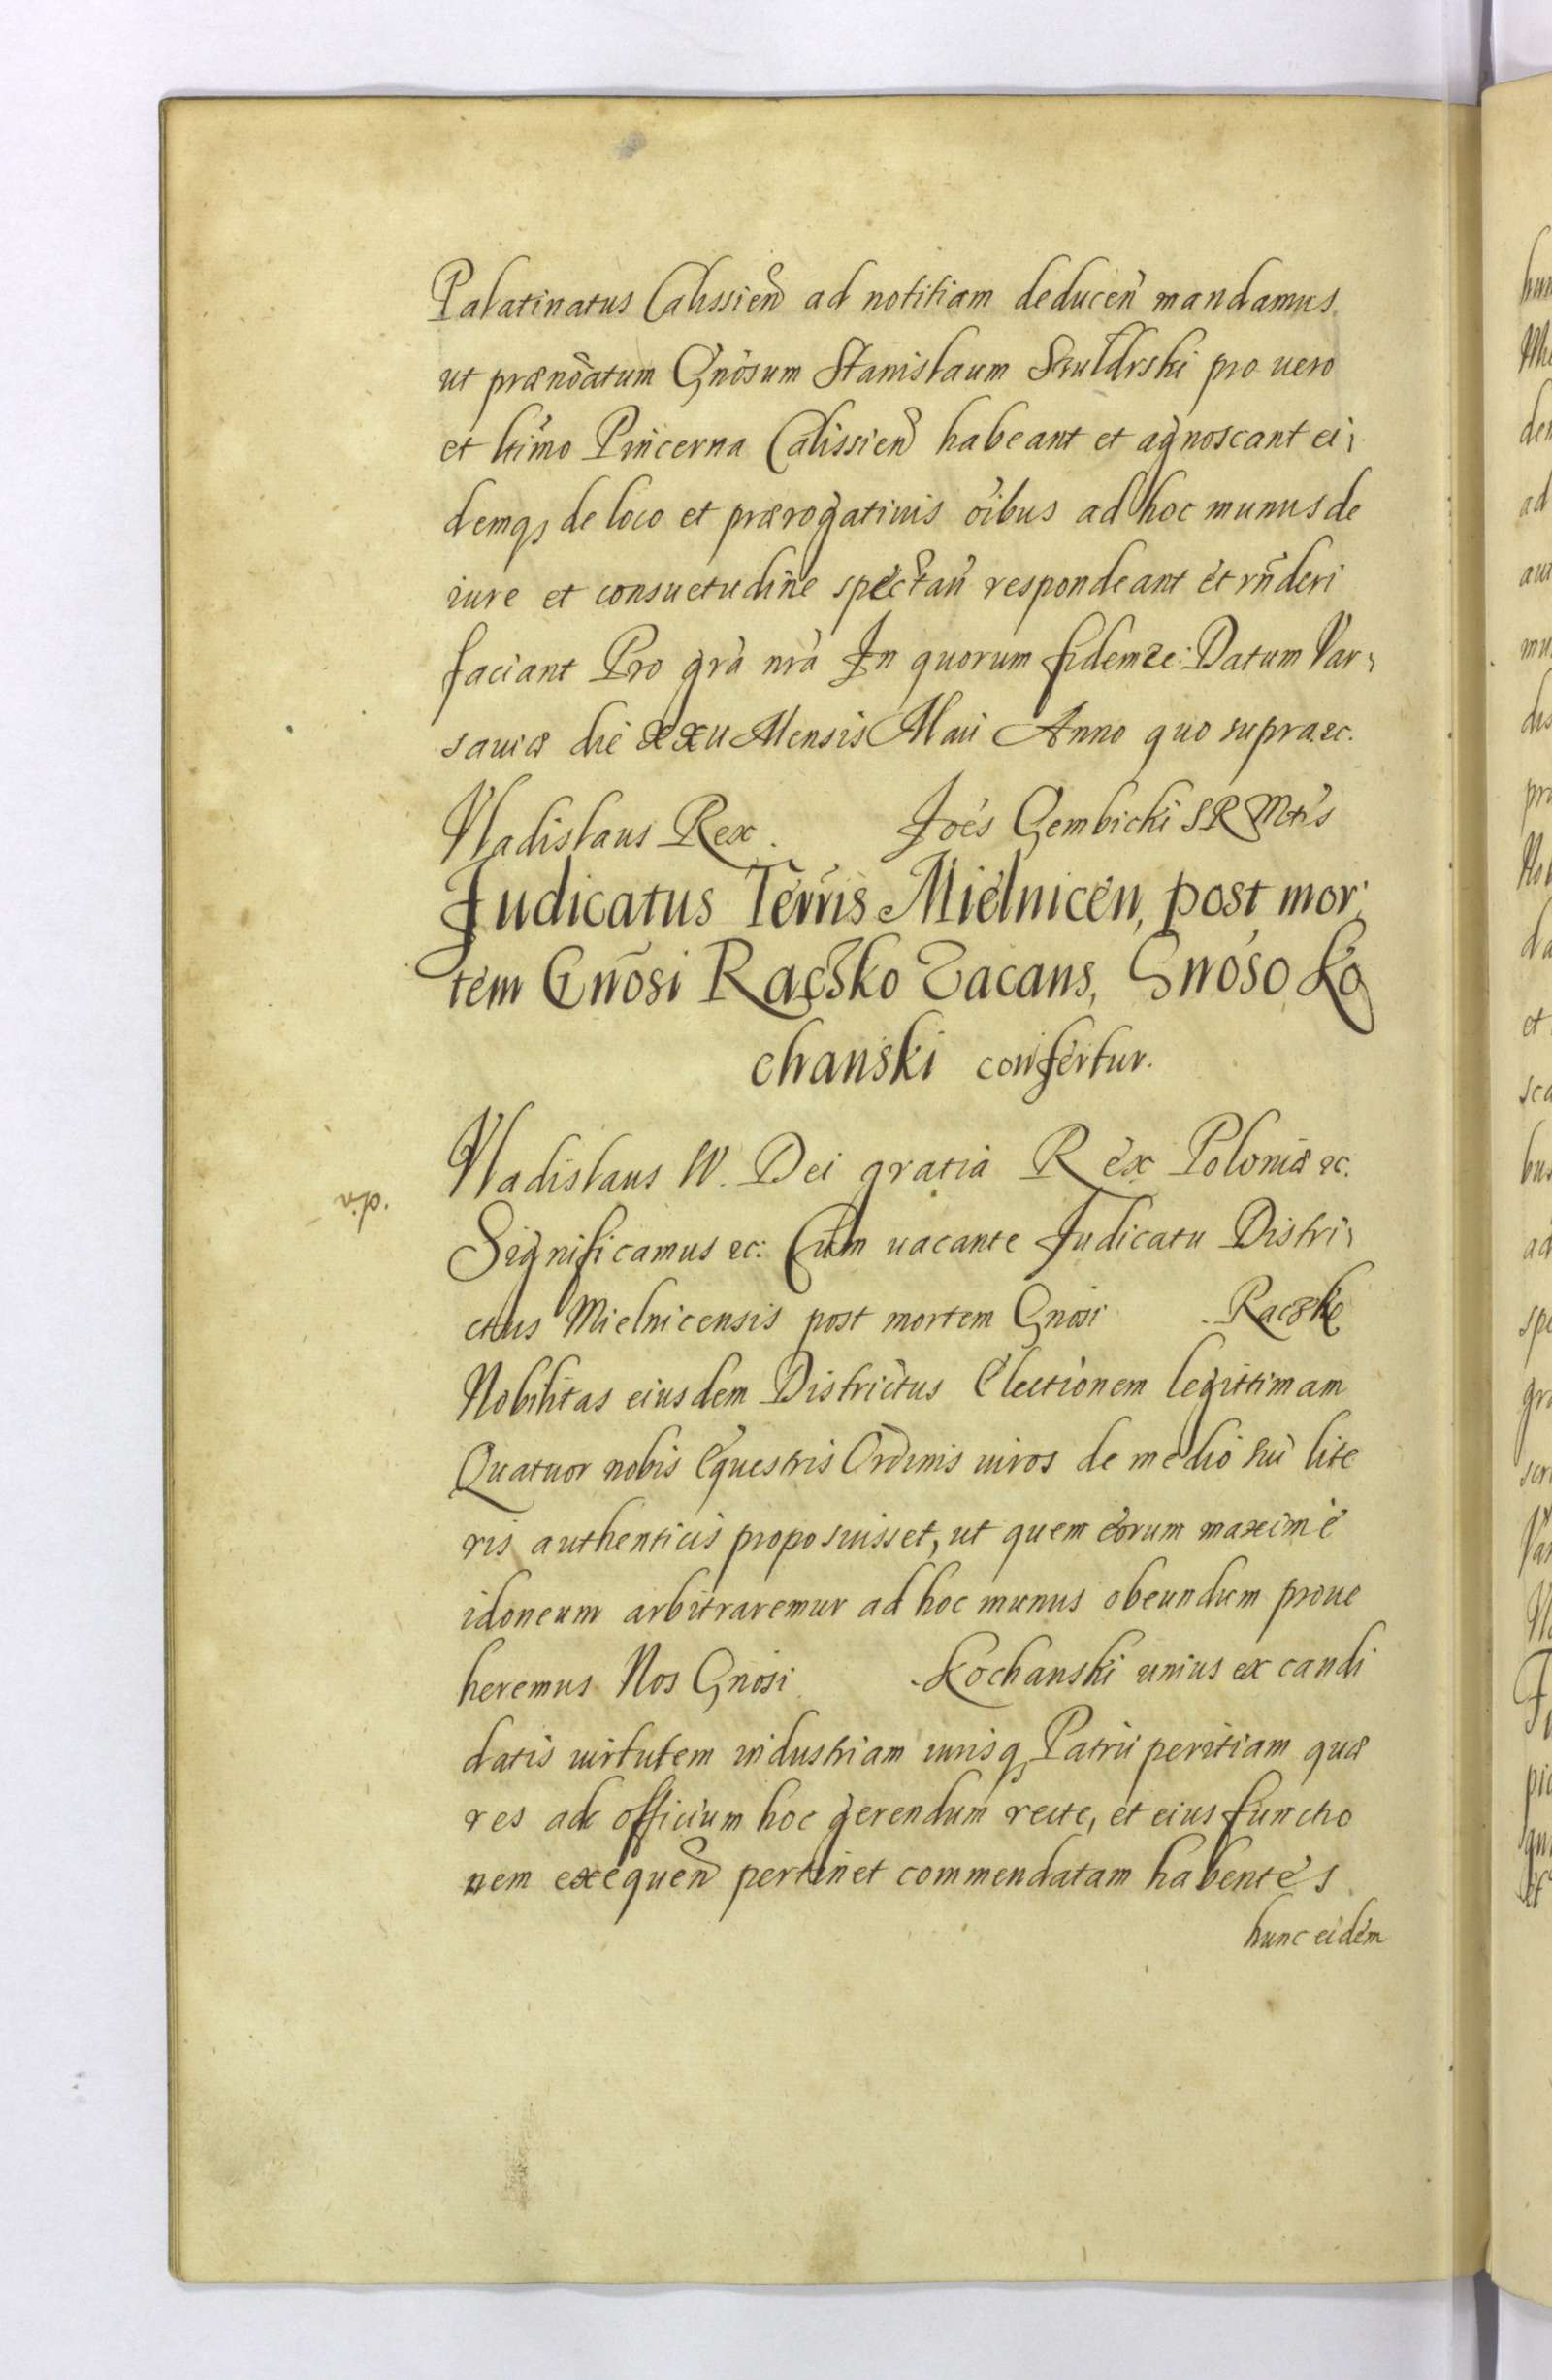 Palatinatus Calissien̄ ad notitiam deducen̄ mandamus
ut prænōatum Gnōsum Stanislaum pro uero
et ltimo Pincerna Calissien̄ habeant et agnoscant ei;
demq₃ de loco et prærogatiuis ōibus ad hoc munus de
iure et consuetudine spectan̄ respondeant et rn̄deri
faciant Pro grā nrā In quorum fidem &c: Datum Var;
sauiæ die xxu Mensis Maii Anno quo supra &c.
Vladislaus Rex. Joēs Gembicki SRMttis
Judicatus Terrīs Mielnicen, post mor;
tem Gnōsi Raczko Vacans, Gnōso Ko
chanski confertur.
Vladislaus IV. Dei gratia Rex Poloniæ &c.
Significamus &c: Cum uacante Judicatu Distri;
ctus Mielnicensis post mortem Gnōsi Raczko
Nobilitas eiusdem Districtus Electionem legittimam
Quatuor nobis Equestris Ordinis uiros de medio sui lite
ris authenticis proposuisset, ut quem eorum maxime
idoneum arbitraremur ad hoc munus obeundum proue
heremus Nos Gnōsi Kochanski unius ex candi
datis uirtutem industriam iurisq₃ Patrii peritiam quæ
res ad officium hoc gerendum recte, et eius functio
nem exequen̄ pertinet commendatam habentes
hunc eidem